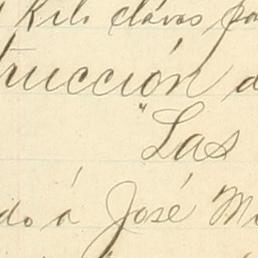 Kil. clavos pa
trucción d
"Las
do á José M